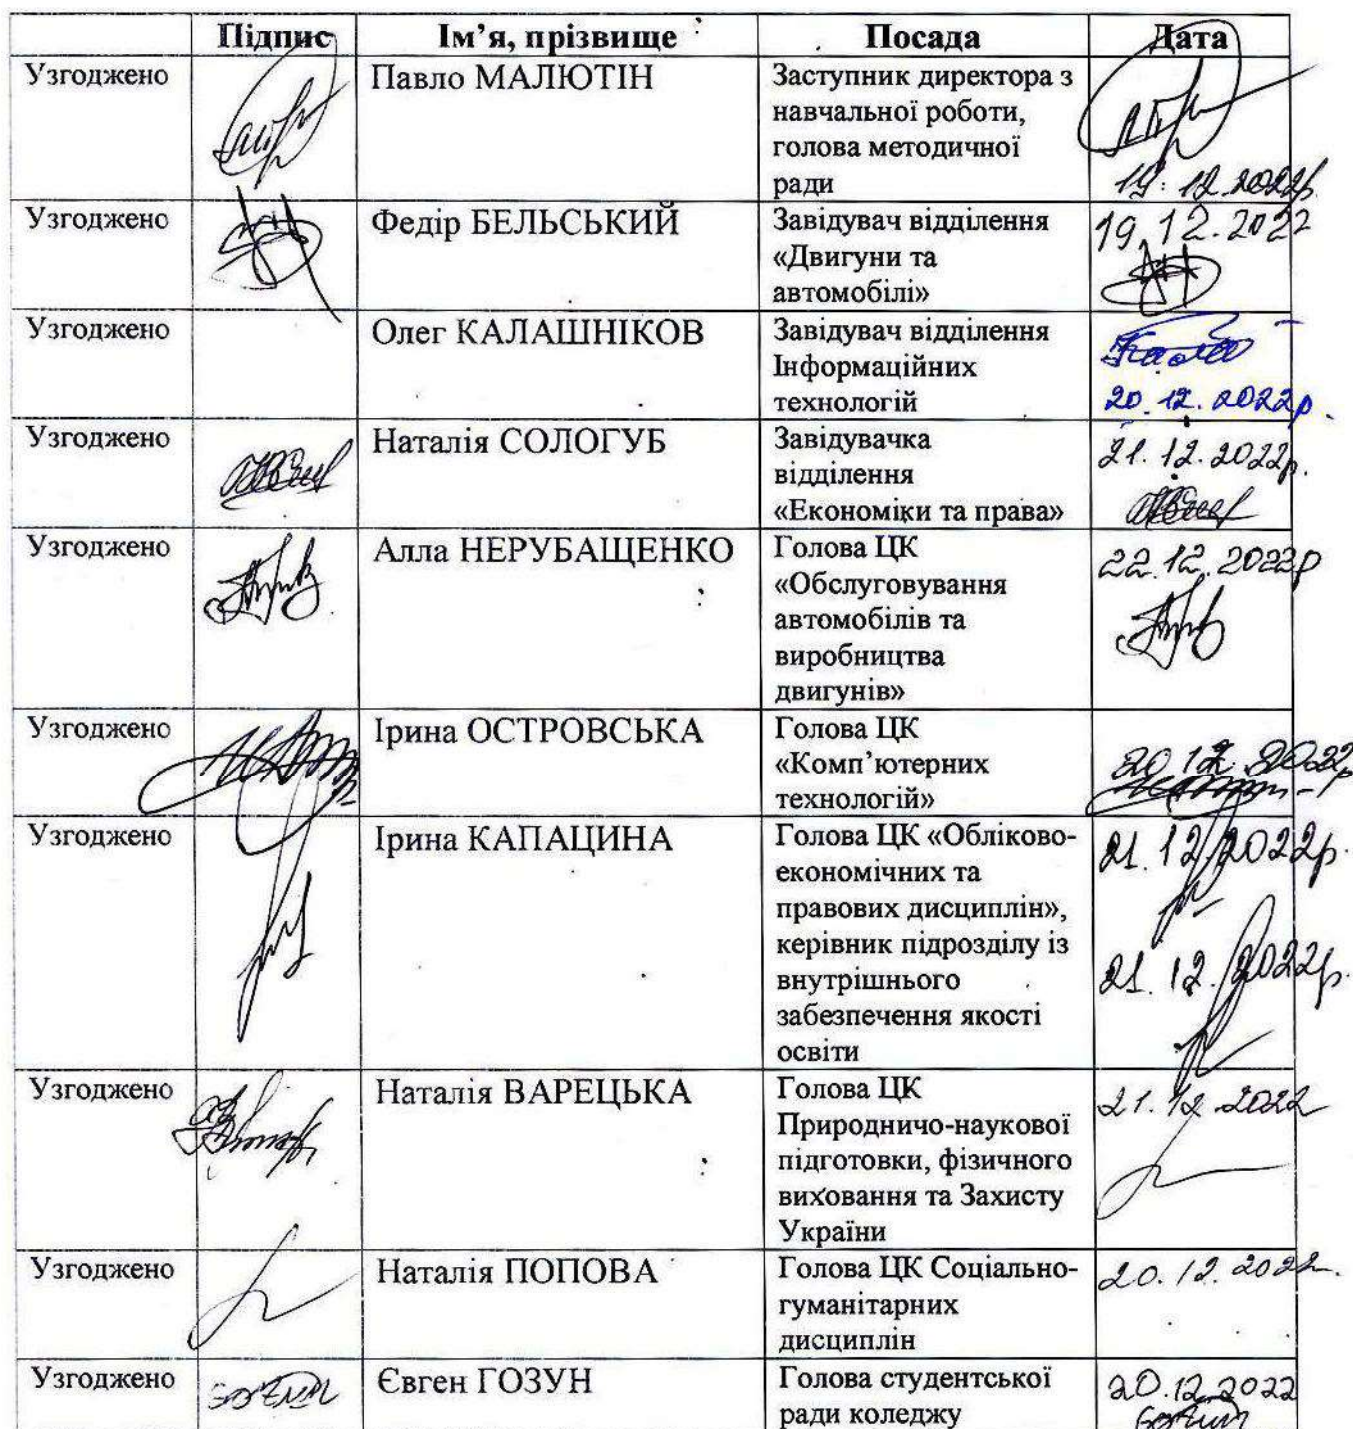 Підпис Ім’я, прізвище Посада Дата
Узгоджено Павло МАЛЮТІН Заступник директора з
навчальної роботи,
голова методичної
ради 19.12.2022р.
Узгоджено Федір БЕЛЬСЬКИЙ Завідувач відділення 19.12.2022
«Двигуни та
автомобілі»
Узгоджено Олег КАЛАШНІКОВ Завідувач відділення
Інформаційних
технологій 20.12.2022р.
Узгоджено Наталія СОЛОГУБ Завідувачка 21.12.2022р.
відділення
«Економіки та права»
Узгоджено Алла НЕРУБАЩЕНКО Голова ЦК 22.12.2022р
«Обслуговування
автомобілів та
виробництва
двигунів»
Узгоджено Ірина ОСТРОВСЬКА Голова ЦК
«Комп’ютерних 20.12.2022р
технологій»
Узгоджено Ірина КАПАЦИНА Голова ЦК «Обліково- 21.12.2022р.
економічних та
правових дисциплін»,
керівник підрозділу із
внутрішнього 21.12.2022р.
забезпечення якості
освіти
Узгоджено Наталія ВАРЕЦЬКА Голова ЦК 21.12.2022
Природничо-наукової
підготовки, фізичного
виховання та Захисту
України
Узгоджено Наталія ПОПОВА Голова ЦК Соціально- 20.12.2022.
гуманітарних
дисциплін
Узгоджено Євген ГОЗУН Голова студентської 20.12.2022
ради коледжу